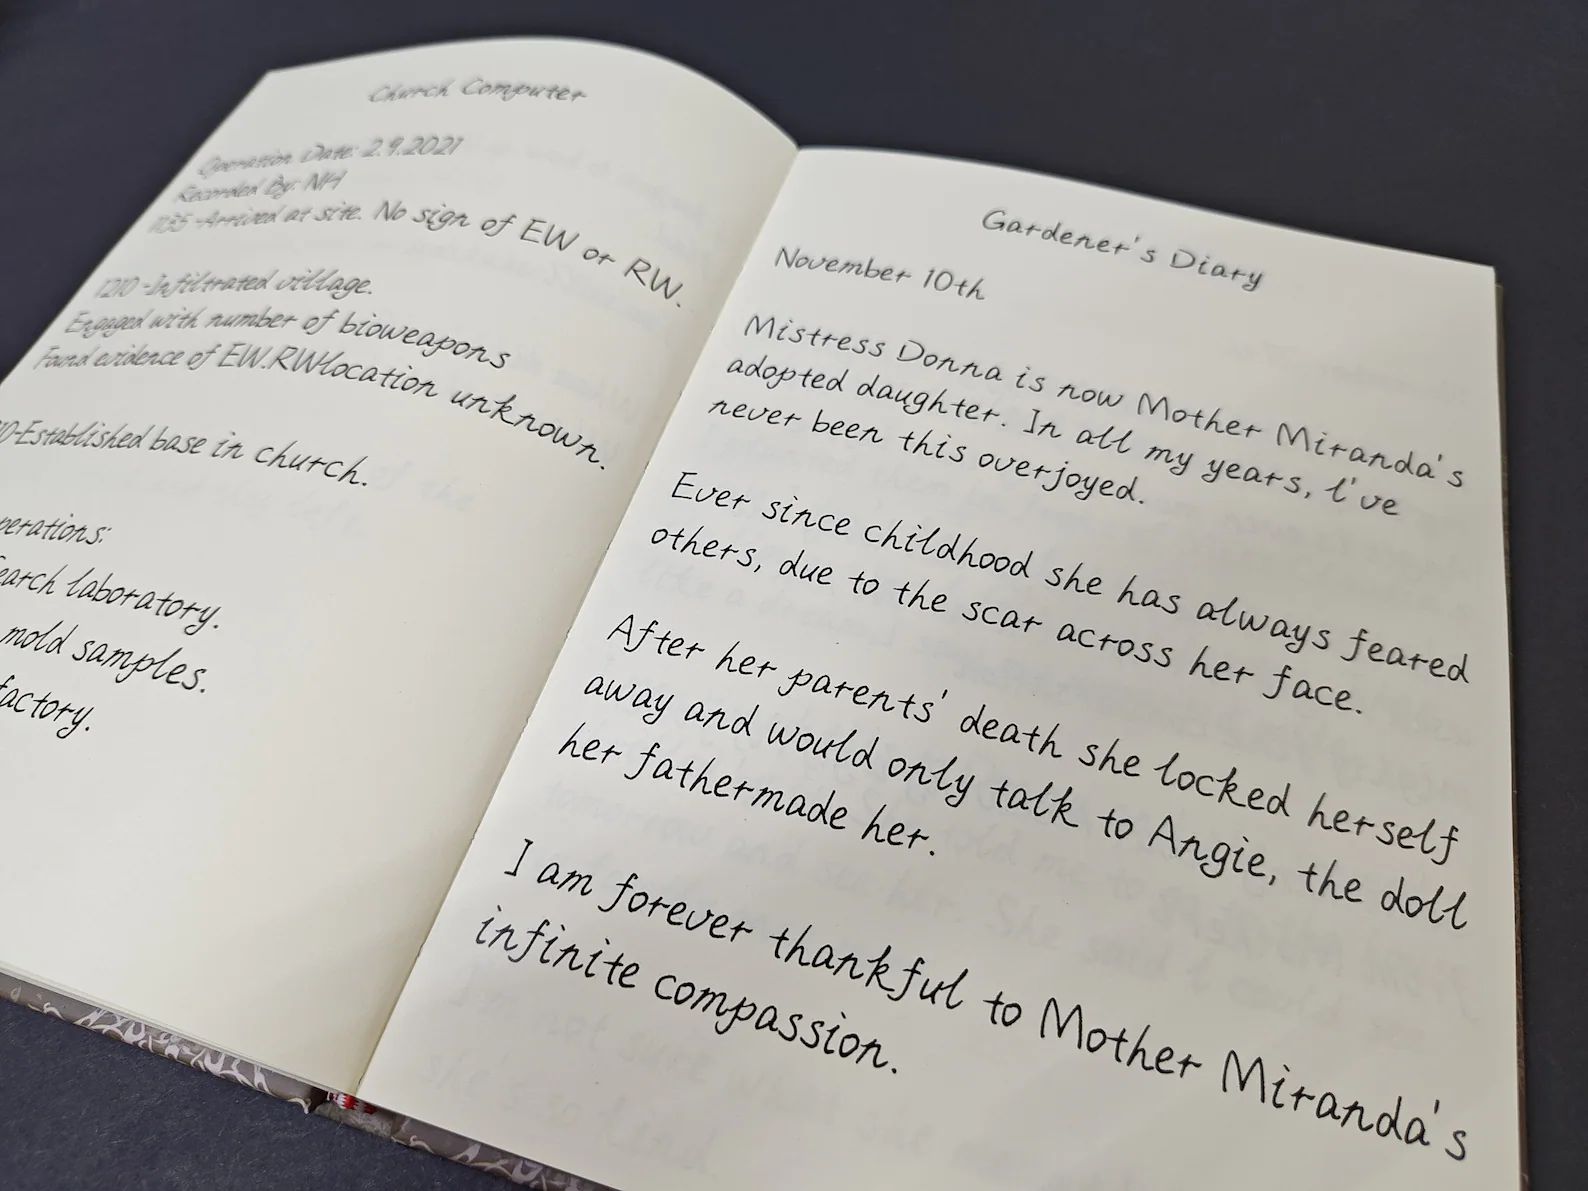 Church Computer
Operation Date: 2.9.2021
Recorded By: NH
1135 -Arrived at site. No sign of EW or RW.
1210 -Infiltrated village.
Engaged with number of bioweapons
Found evidence of EW.RWlocation unknown.
0-Established base in church.
perations:
earch laboratory.
mold samples.
factory.
Gardener's Diary
November 10th
Mistress Donna is now Mother Miranda's
adopted daughter. In all my years, l've
never been this overjoyed.
Ever since childhood she has always feared
others, due to the scar across her face.
After her parents' death she locked herself
away and would only talk to Angie, the doll
her fathermade her.
I am forever thankful to Mother Miranda's
infinite compassion.